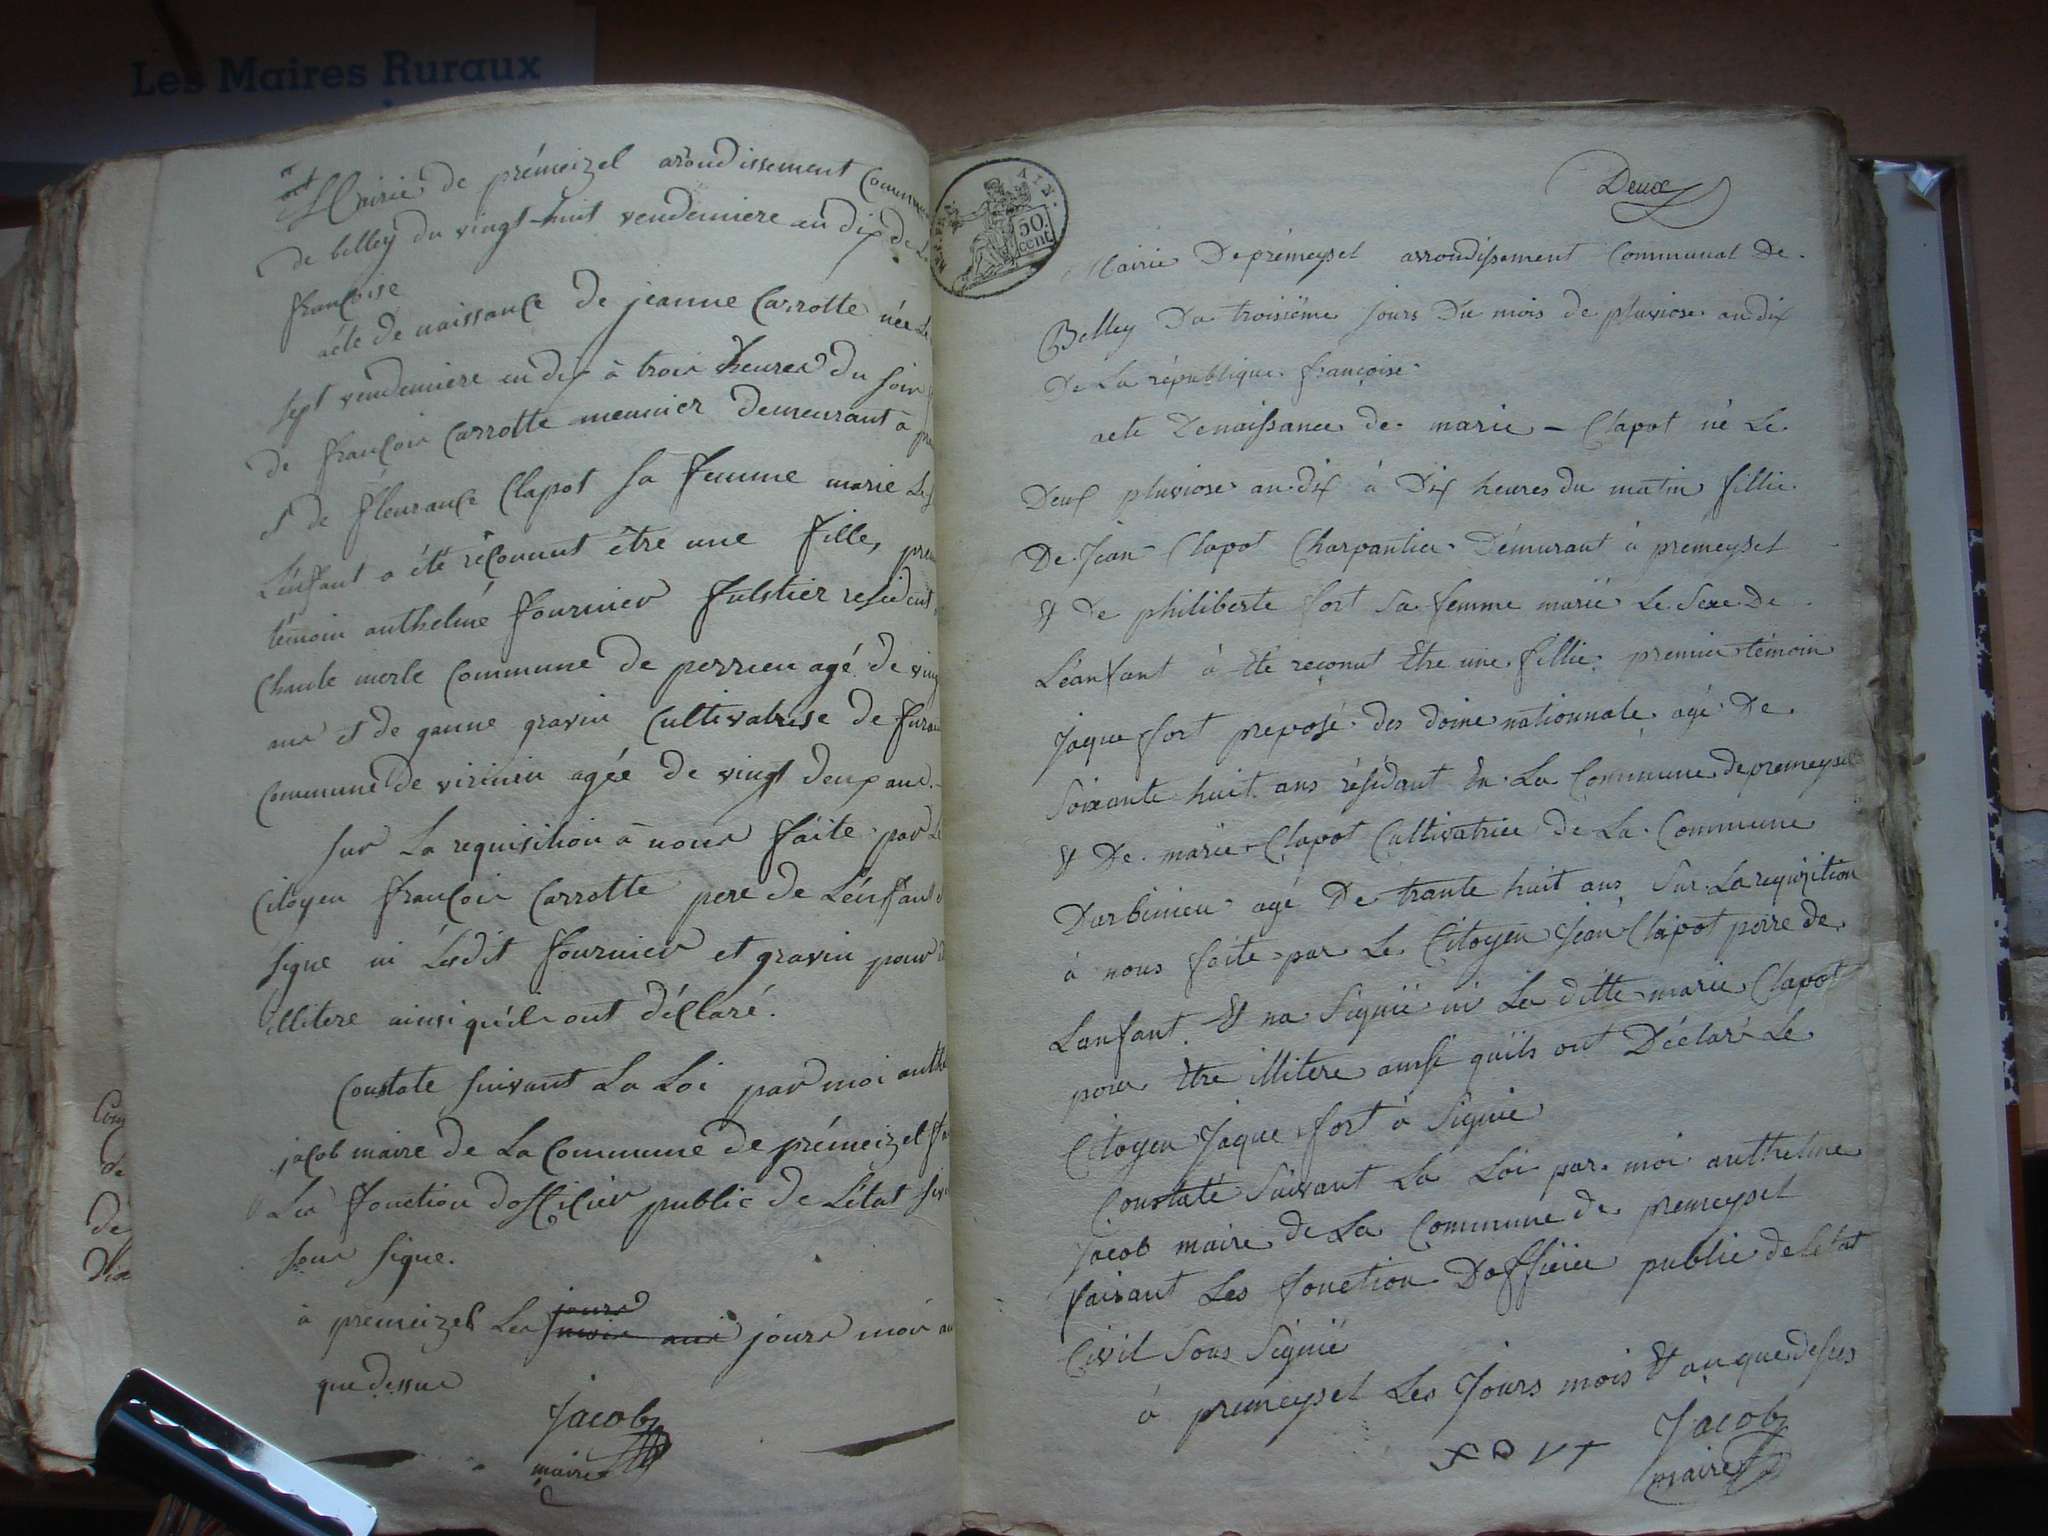 Les Maires Ruraux
Mairie de prémeizel arondissement Commun
de belley du vingt-huit vendemiere an dix de L
françoise
acte de naissance de jeanne Carrotte née Le
sept vendemiere en dix à trois heures du soir
de françois Carrotte meunier demeurant à pre
et de fleurance Clapot sa femme marie Le
L'énffant a été réconnut être une fille, prem
témoin anthelme fournier resident
Commune de perrieu agé de ving
ans et de gravin Cultivatrise de
Commune de virinin agée de vingt deux ans.
sur La requisition à nous faite par Le
Citoyen françois Carrotte pere de L'énffant
signe ni Lesdit fournier et gravin pour
illitere ainsi quéils ont déclaré.
Constate suivant La Loi par moi anthe
jacob maire de La Commune de prémeizel fa
Les fonction doffiCier public de L'état sivi
sous signe.
à premeizel Les jours mois an
que dessus
Jacob
maire
50
cent
Deux
Mairie De prémeysel arrondissement Communal de
Belley Du troisiëme jours Du mois de pluviose an dix
De La république françoise
acte De naissance de marie - Clapot né Le
Deux pluviose an dix à Dix heures du matin fillie
De Jean Clapot Charpantier Démurant à prémeysel
& De philiberte fort sa femme marië Le Sexe De
Léanfant à été reçonut être une fillie premier témoin
Jaque fort preposé des doine nationnale agé De
Soixante huit ans résidant En La Commune de premeysel
& De marie Clapot Cultivatrice De La Commune
Darbinieu agé De trante huit ans Sur La requisition
à nous faite par Le Citoyen Jean Clapot perre de
Lanfant & na Signië ni La ditte marie Clapot
pour Etre illitere ainsi quils ont Déclaré Le
Citoyen Jaque fort à Signié
Constaté Suivant La Loi par moi anthelme
Jacob maire De La Commune de premeysel
faisant Les fonction Dofficier public de letat
Civil Sous Signië
à premeysel Les Jours mois & an que desus
Jacob
maire